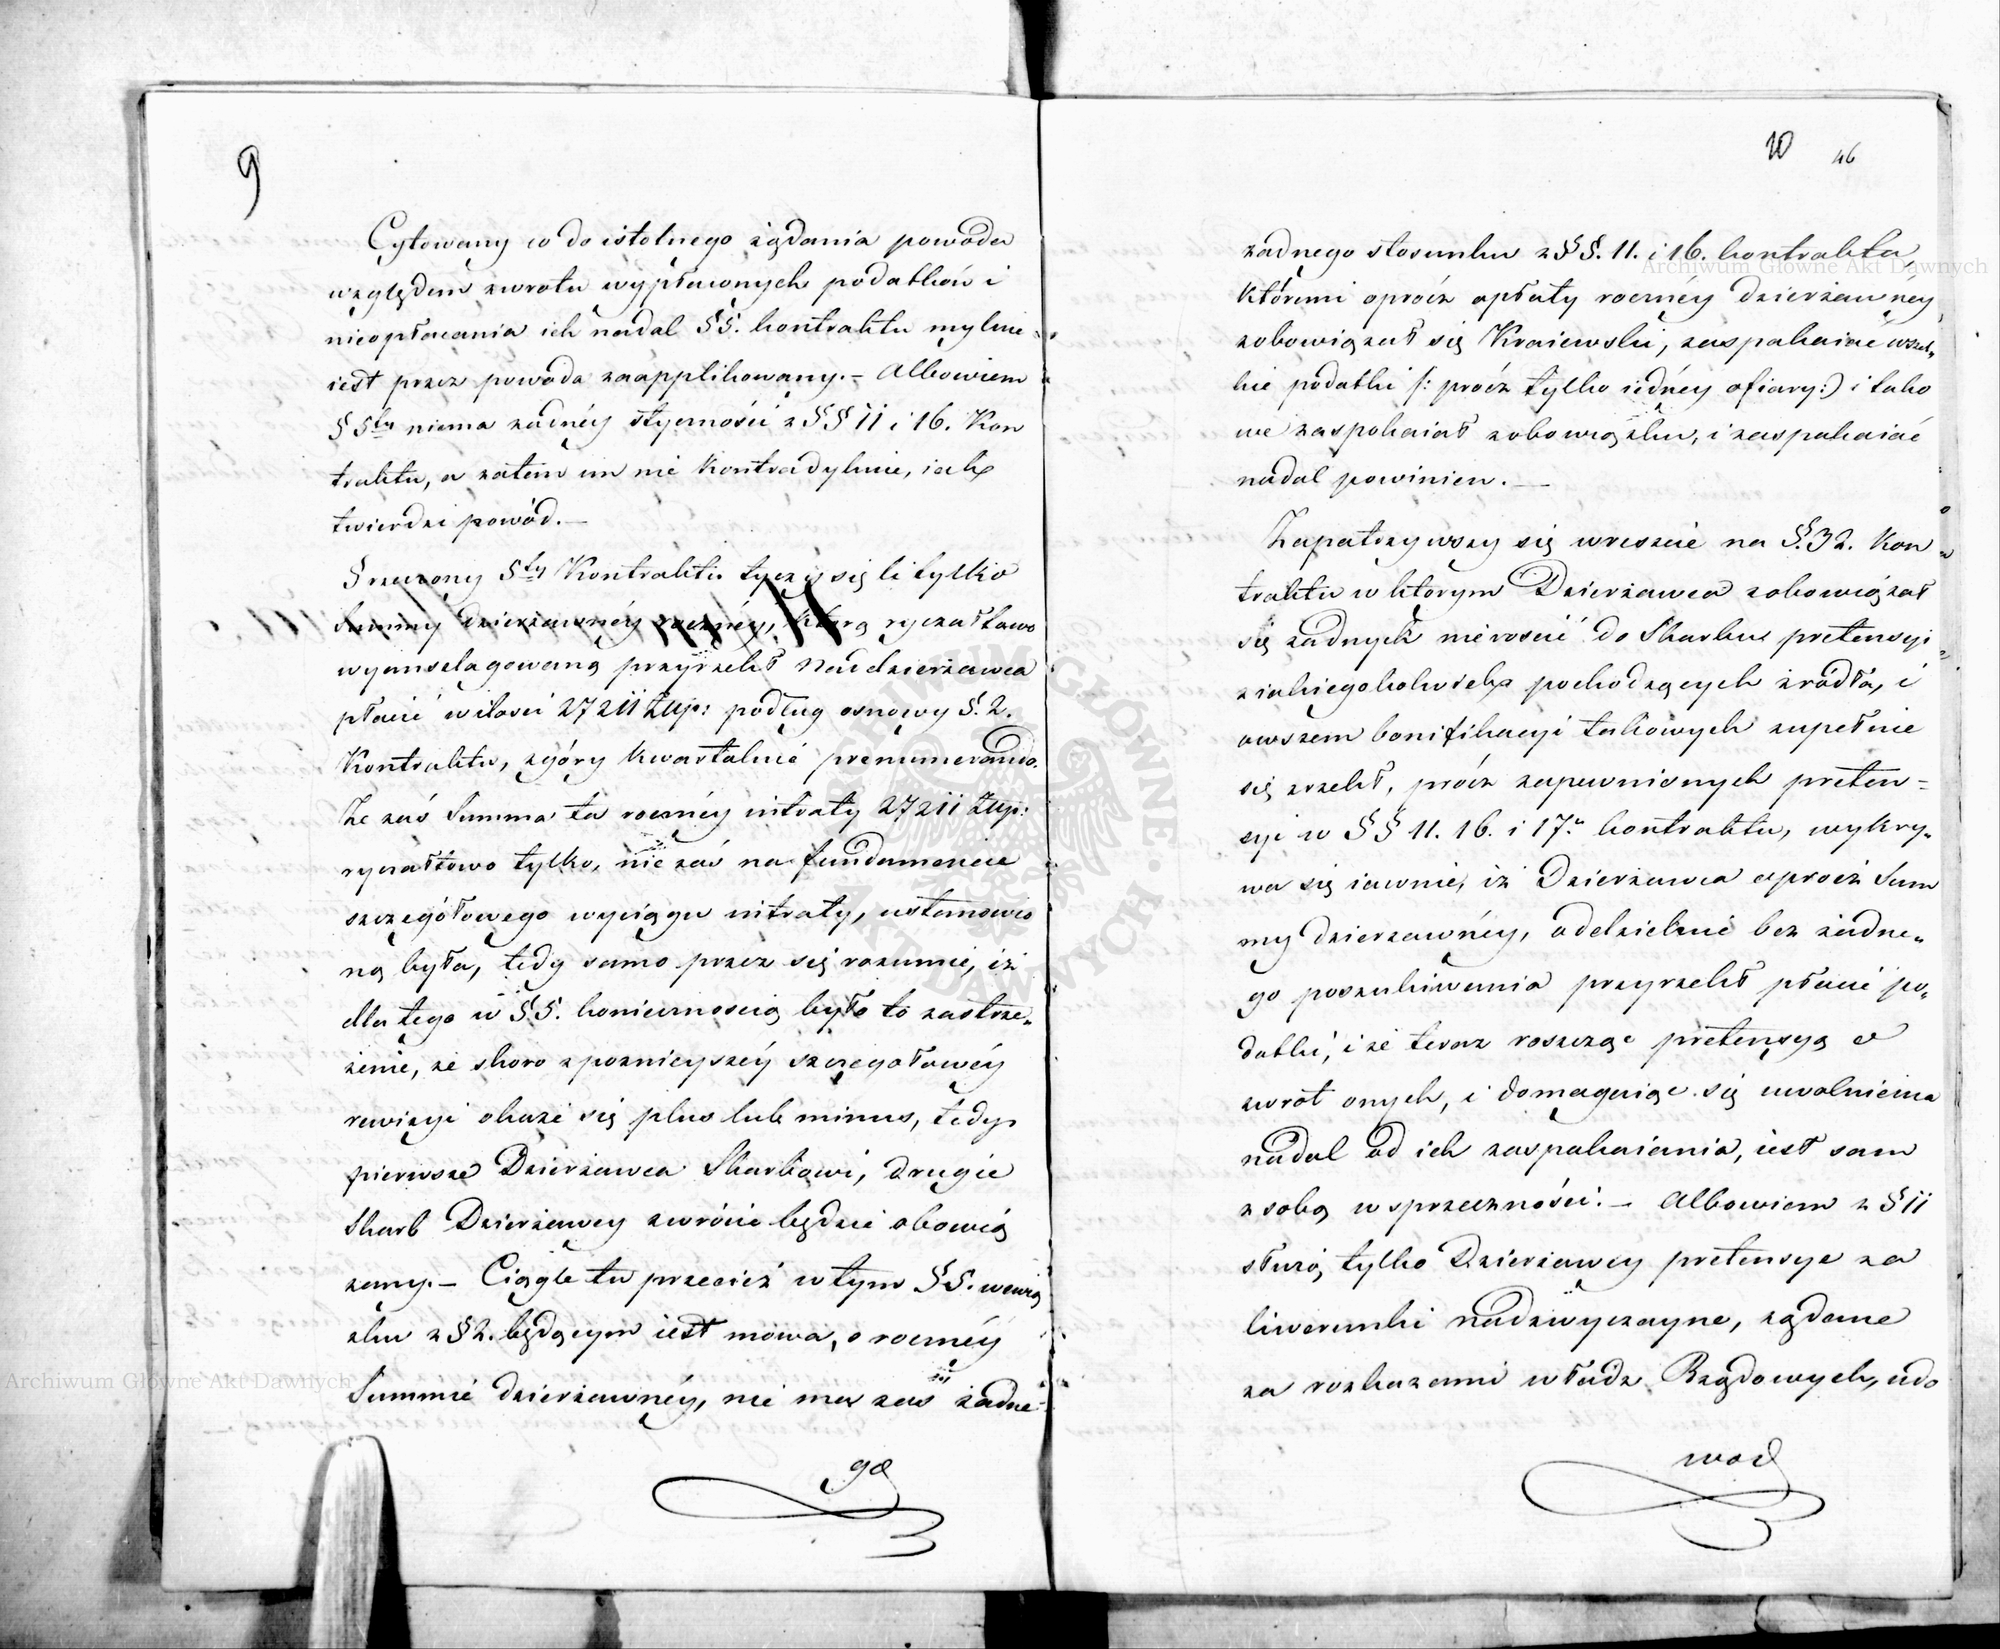 9
Cytowany w do istotnego żądania powoda
względem zwrotu wypłaconych podatków i
nieopłacania ich nadal §5. kontraktu mylnie
iest przez powoda zaapplikowany. – Albowiem
§ 5ty niema żadnéy styczności z §§ 11 i 16. Kon
traktu, a zatém im nie kontradykuie, iak
twierdzi powód. –
§ rzeczony 5ty Kontraktu tyczy się li tylko
Summy dzierżawnéy rocznéy, którą ryczałtowo
wyanszlagowaną przyrzekł Naddzierżawca
płacić w ilości 27211 Złp: podług osnowy §. 2.
Kontraktu, zgóry kwartalnié prenumerando.
Że zaś Summa ta rocznéy intraty 27211 Złp:
ryczałtowo tylko, nie zaś na fundamencie
szczegółowego wyciągu intraty, ustanowio
ną była, tedy samo przez się rozumie, iż
dla tego w § 5. koniecznością było to zastrze„
żenie, że skoro z poznieyszéy szczegołowéy
rewizyi okaże się plus lub minus, tedy
pierwsze Dzierżawca Skarbowi, drugie
Skarb Dzierżawcy zwrócić będzie obowią
zany. – Ciągle tu przecież w tym § 5. w zwią
zku z § 2. będącym iest mowa, o rocznéy
Summie dzierżawnéy, nié ma zaś żadne
go
10
46
żadnego stosunku z §§. 11. i 16. kontraktu,
któremi oprócz opłaty rocznéy dzierżawnéy,
zobowiązał się Kraiewski, zaspakaiać wszel„
kie podatki /: prócz tylko iednéy ofiary :) i tako
we zaspokaiał zobowiązku, i zaspakaiać
nadal powinien. —
Zapatrzywszy się wreszcie na §. 32. Kon„
traktu w którym Dzierżawca zobowiązał
się żadnych nierościć do Skarbu pretensyi
z iakiegokolwiek pochodzących źródła, i
owszem bonifikacyi takowych zupełnie
się zrzekł, prócz zapewnionych preten=
syi w §§ 11. 16. i 17. kontraktu, wykry„
wa się iawnie, iż Dzierżawca oprócz Sum
my dzierżawnéy, oddzielnié bez żadne„
go poszukiwania przyrzekł płacić po„
datki, i że teraz roszcząc pretensyą o
zwrot onych, i domagaiąc się uwolnienia
nadal od ich zaspakaiania, iest sam
z sobą w sprzeczności. – Albowiem z § 11
służą tylko Dzierżawcy pretensye za
liwerunki nadzwyczayne, żądane
za rozkazami władz Rządowych, udo
wod